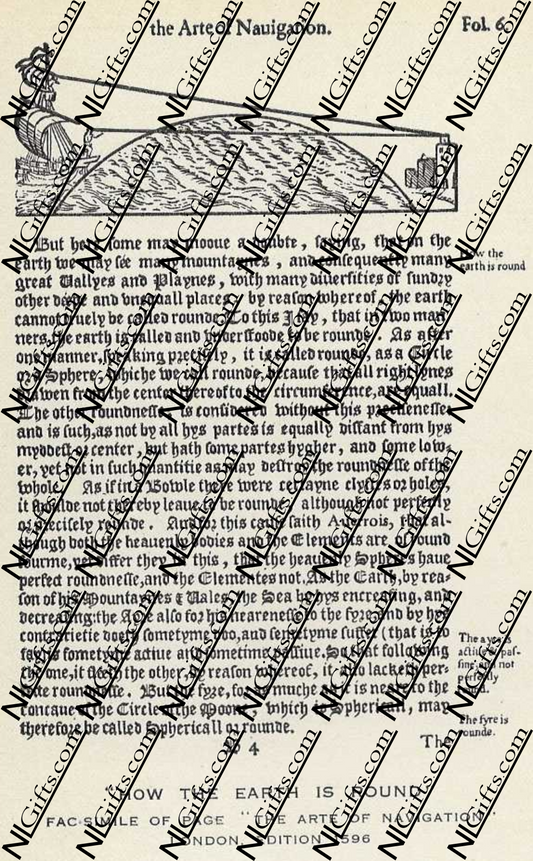 the Arte of Nauigation. Fol. 6
But here some may mooue a doubte, saying, that on the
earth we may see many mountaynes, and consequently many
great Vallyes and Playnes, with many diuersities of sundry
other deepe and vnequall places, by reason whereof, the earth
cannot truely be called rounde. To this I say, that in two man-
ners, the earth is called and vnderstoode to be rounde. As after
one manner, speaking precisely, it is called rounde, as a Circle
or a Sphere, whiche we call rounde, because that all right lynes
drawen from the center thereof to the circumference, are equall.
The other roundnesse is considered without this precisenesse
and is such, as not by all hys partes is equally distant from hys
myddest or center, but hath some partes hygher, and some low-
er, yet not in such quantitie as may destroy the roundnesse of the
whole. As if in a Bowle there were certayne clyftes or holes,
it shoulde not thereby leaue to be rounde, although not perfectly
or precisely rounde. And for this cause saith Auerrois, that al-
though both the heauenly bodies and the Elements are of round
fourme, yet differ they in this, that the heauenly Spheres haue
perfect roundnesse, and the Elementes not. As the Earth, by rea-
son of his Mountaynes & Vales, the Sea by hys encreasing, and
decreasing: the Ayre also for his nearenesse to the fyre, and by hys
contrarietie doeth sometyme doo, and sometyme suffer (that is to
say) is sometyme actiue and sometime passiue. So that following
the one, it fleeth the other, by reason whereof, it also lacketh per-
fecte roundnesse. But the fyre, for as muche as it is neare to the
concaue of the Circle of the Moone, which is Sphericall, may
therefore be called Sphericall or rounde.
How the
earth is round
The ayre is
actiue & pas-
siue, and not
perfectly
round.
The fyre is
rounde.
B 4 The
HOW THE EARTH IS ROUND
FAC-SIMILE OF PAGE "THE ARTE OF NAVIGATION"
LONDON, EDITION 1596
NlGifts.com